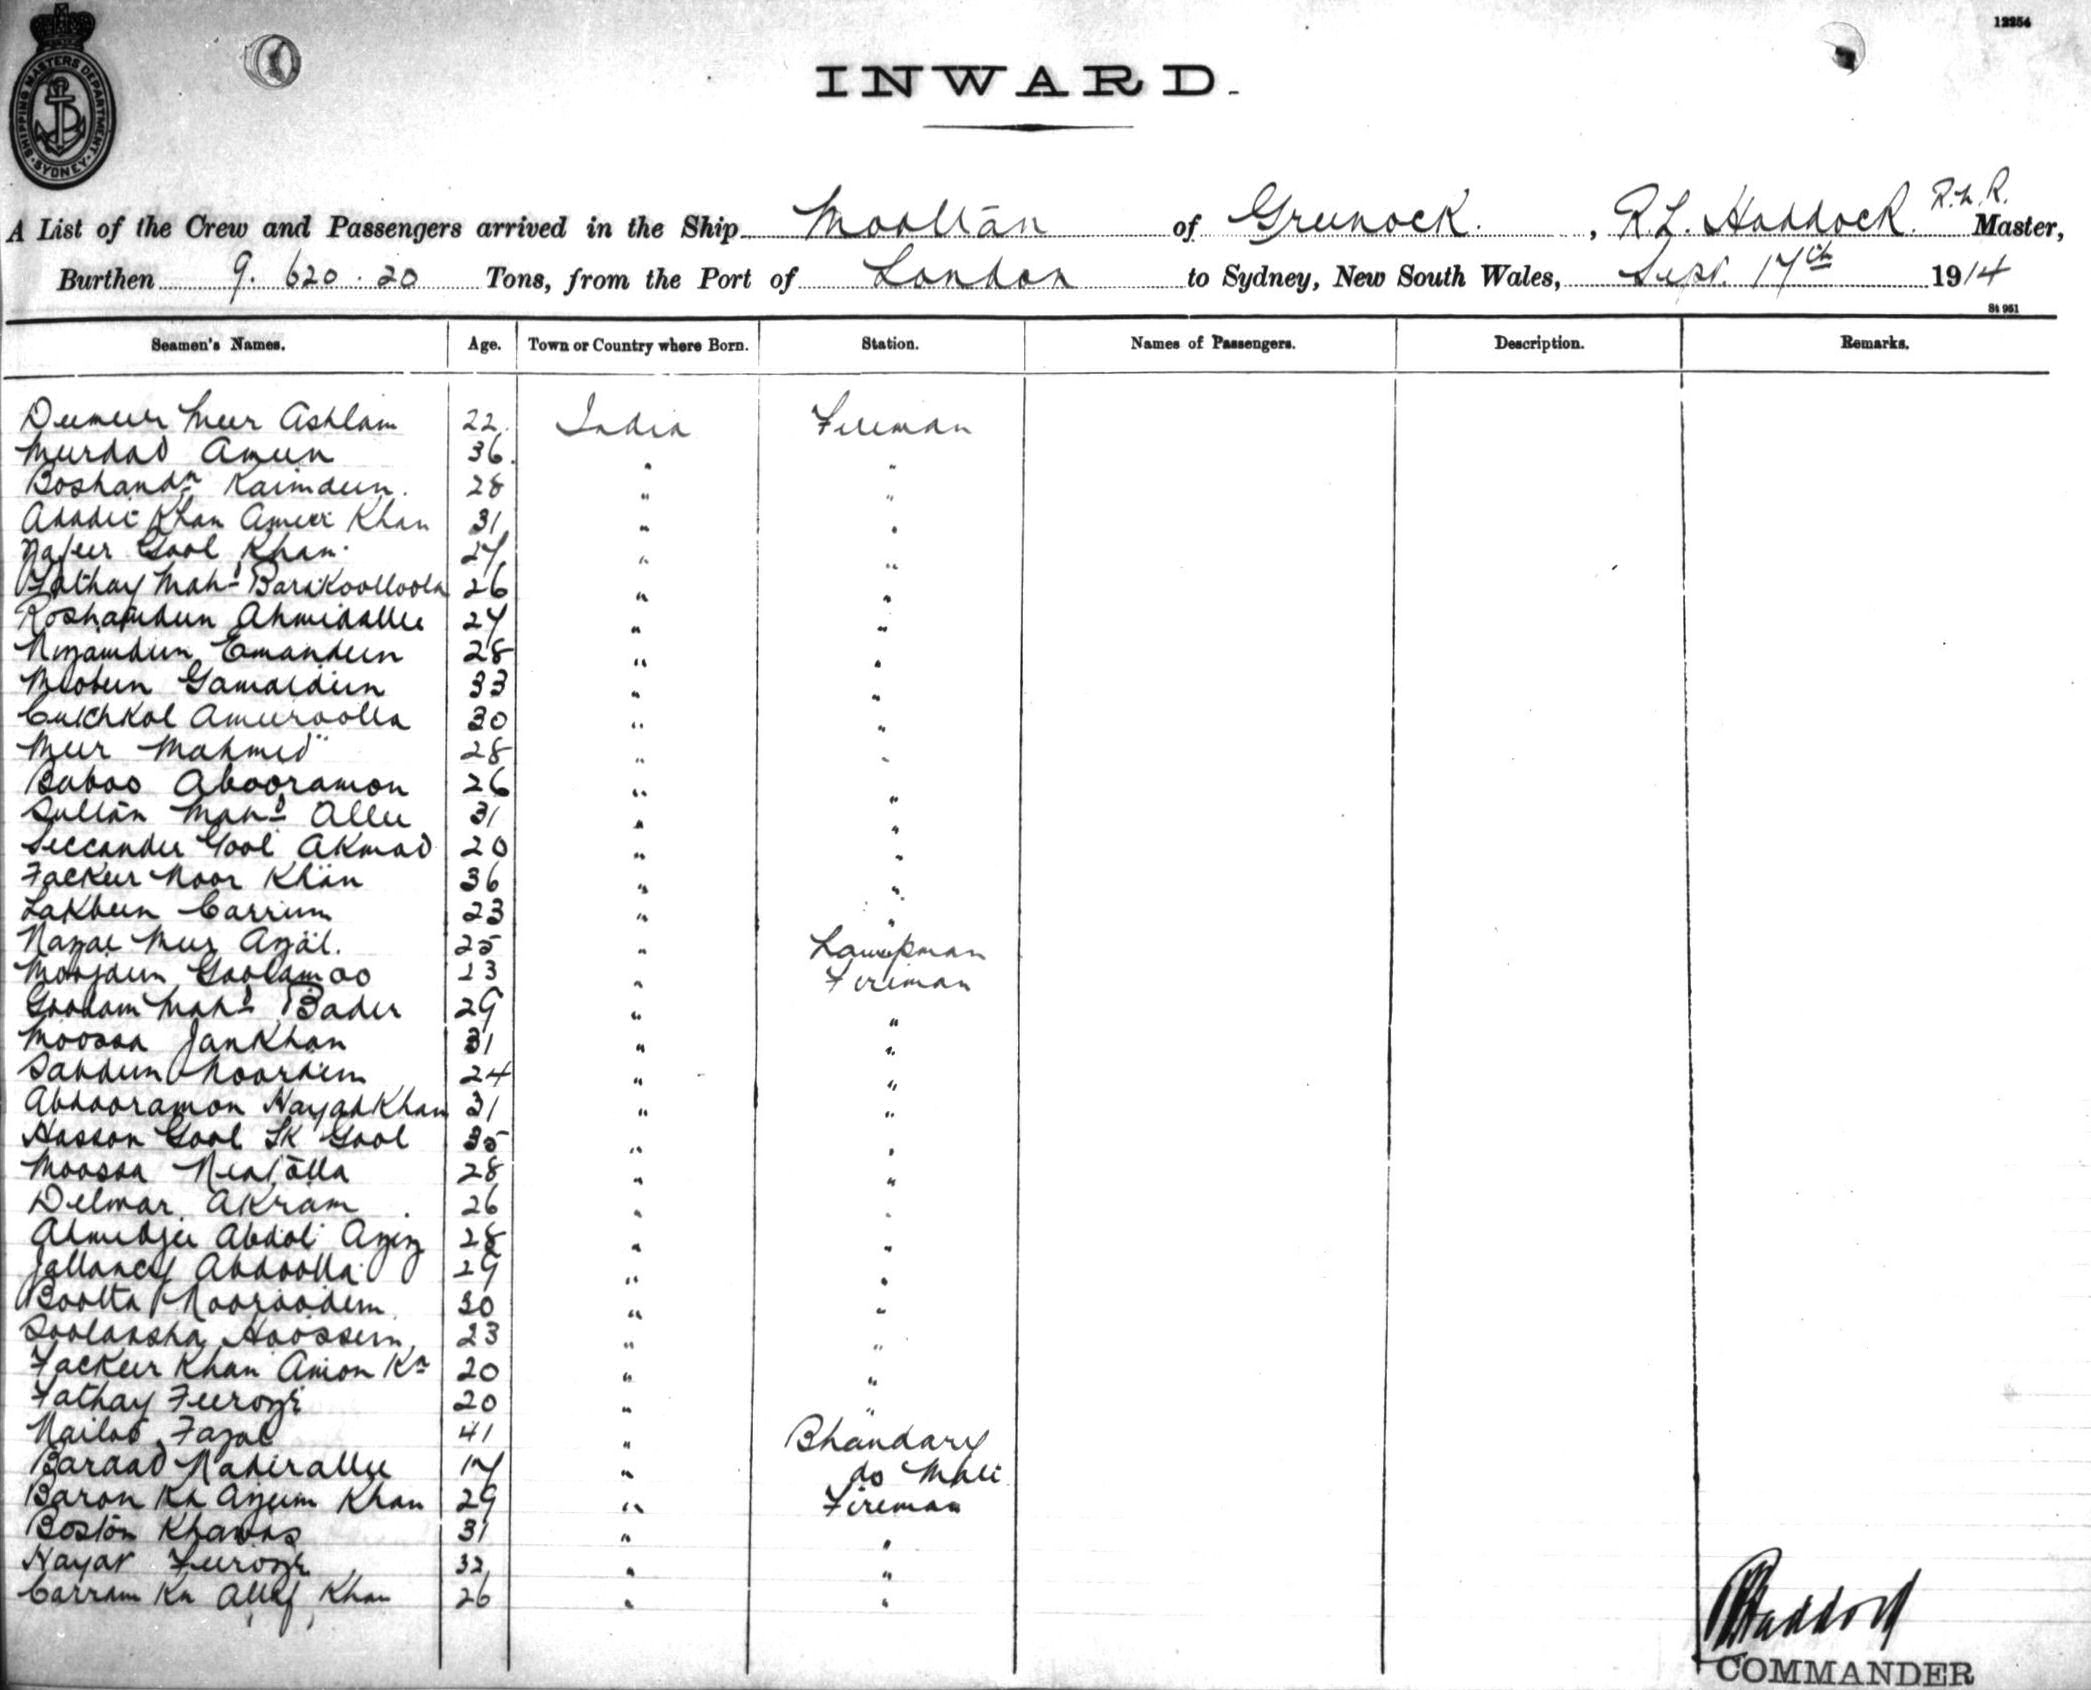 12254
SHIPPING MASTERS DEPARTMENT · SYDNEY ·
INWARD.
A List of the Crew and Passengers arrived in the Ship Mooltan of Greenock, R.L. Haddock R.N.R. Master,
Burthen 9.620.20 Tons, from the Port of London to Sydney, New South Wales, Sept. 17th 1914
St 951
Seamen's Names. Age. Town or Country where Born. Station. Names of Passengers. Description. Remarks.
Deemeer Meer Ashlam 22 India Fireman
Murdad Ameen 36 " "
Boshandn Kaimdeen 28 " "
Khan Ameer Khan 31 " "
Nafeer Gool Khan 27 " "
Fathay Mahd Barakoolloola 26 " "
Roshamdeen Ahmidallee 27 " "
Nizamdeen Emandeen 28 " "
Gamaldeen 33 " "
Ameeroolla 30 " "
Meer Mahmed 28 " "
Baboo Abooramon 26 " "
Sultan Mahd Allee 31 " "
Seccander Gool Akmad 20 " "
Fackeer Noor Khan 36 " "
Lakbeen Carrim 23 " "
Nazal Meer Azal. 25 " Lampman
Moojdeen Goolamoo 23 " Fireman
Goolam Mahd Bader 29 " "
Moossa Jan Khan 31 " "
Sabdeen Noordeen 24 " "
Abdooramon Hayad Khan 31 " "
Hassan Gool Sk Gool 35 " "
Moossa 28 " "
Delmar Akram 26 " "
Ahmedjee Abdol Aziz 28 " "
Abdoolla 29 " "
Boolta Nooroodeen 30 " "
Hoossein 23 " "
Fackeer Khan Amon Kn 20 " "
Fathay Feeroze 20 " "
Fazal 41 " Bhandary
Nadirallee 17 " do Mate
Baron Kn Azeem Khan 29 " Fireman
Boston Khawas 31 " "
Hayat Feeroze 32 " "
Carram Kn Khan 26 " "
Haddock
COMMANDER